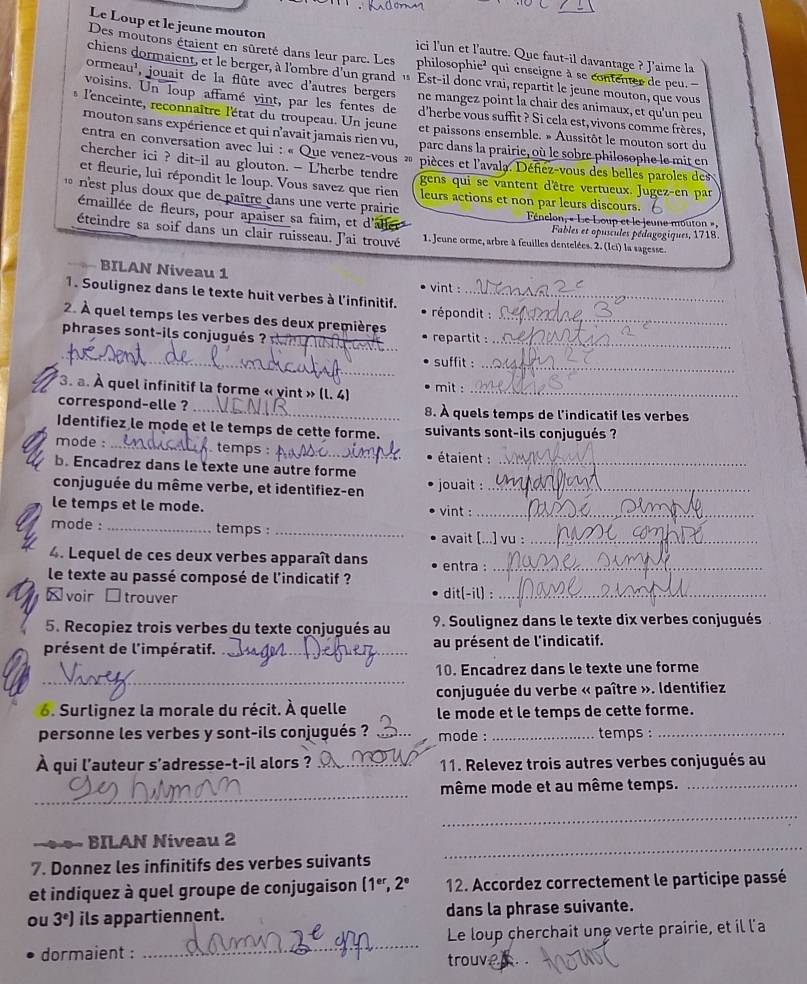 Le Loup et le jeune mouton
Des moutons étaient en sûreté dans leur parc. Les
chiens dormaient, et le berger, à l'ombre d'un grand
ormeau¹, jouait de la flûte avec d'autres bergers
voisins. Un loup affamé vint, par les fentes de
5 l'enceinte, reconnaître l'état du troupeau. Un jeune
mouton sans expérience et qui n'avait jamais rien vu,
entra en conversation avec lui : « Que venez-vous
chercher ici ? dit-il au glouton. – L'herbe tendre
et fleurie, lui répondit le loup. Vous savez que rien
10 n'est plus doux que de paître dans une verte prairie
émaillée de fleurs, pour apaiser sa faim, et d'aller
éteindre sa soif dans un clair ruisseau. J'ai trouvé
ici l'un et l'autre. Que faut-il davantage ? J'aime la
philosophie² qui enseigne à se contenter de peu. –
15 Est-il donc vrai, repartit le jeune mouton, que vous
ne mangez point la chair des animaux, et qu'un peu
d'herbe vous suffit ? Si cela est, vivons comme frères,
et paissons ensemble. » Aussitôt le mouton sort du
parc dans la prairie, où le sobre philosophe le mit en
20 pièces et l'avala. Défiez-vous des belles paroles des
gens qui se vantent d'être vertueux. Jugez-en par
leurs actions et non par leurs discours. 6
Fénelon, « Le Loup et le jeune mouton »,
Fables et opuscules pédagogiques, 1718.
1. Jeune orme, arbre à feuilles dentelées. 2. (Ici) la sagesse.
BILAN Niveau 1
1. Soulignez dans le texte huit verbes à l'infinitif.
2. À quel temps les verbes des deux premières
phrases sont-ils conjugués ? imparfait
présent de l'indicatif
3. a. À quel infinitif la forme « vint » (l. 4)
correspond-elle ? VENIR
Identifiez le mode et le temps de cette forme.
mode : indicatif temps : passé simple
b. Encadrez dans le texte une autre forme
conjuguée du même verbe, et identifiez-en
le temps et le mode.
mode : temps :
4. Lequel de ces deux verbes apparaît dans
le texte au passé composé de l'indicatif ?
☒ voir ☐ trouver
5. Recopiez trois verbes du texte conjugués au
présent de l'impératif. Juger Défiez
Vivez
6. Surlignez la morale du récit. À quelle
personne les verbes y sont-ils conjugués ? 3
À qui l'auteur s'adresse-t-il alors ? a nous
BILAN Niveau 2
7. Donnez les infinitifs des verbes suivants
et indiquez à quel groupe de conjugaison (1er, 2e
ou 3e) ils appartiennent.
• dormaient : dormir 3e grp
• vint : Venir 2e
• répondit : repondre 3e
• repartit : repartir 2e
• suffit : suffir 2e
• mit : 3e
8. À quels temps de l'indicatif les verbes
suivants sont-ils conjugués ?
• étaient : imparfait
• jouait : imparfait
• vint : passé simple
• avait [...] vu : passe compose
• entra : passe simple
• dit(-il) : passe simple
9. Soulignez dans le texte dix verbes conjugués
au présent de l'indicatif.
10. Encadrez dans le texte une forme
conjuguée du verbe « paître ». Identifiez
le mode et le temps de cette forme.
mode : temps :
11. Relevez trois autres verbes conjugués au
même mode et au même temps.
12. Accordez correctement le participe passé
dans la phrase suivante.
Le loup cherchait une verte prairie, et il l'a
trouv